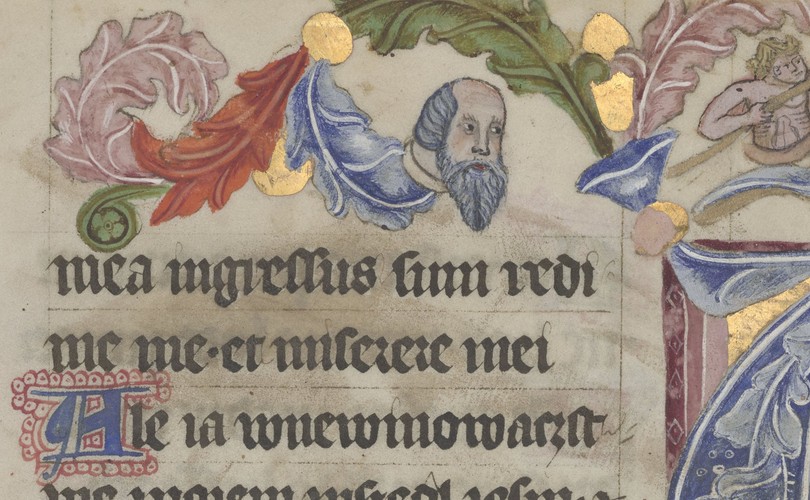 mea ingressus sum redi
me me·et miserere mei
Ale ia wnewinowaczst